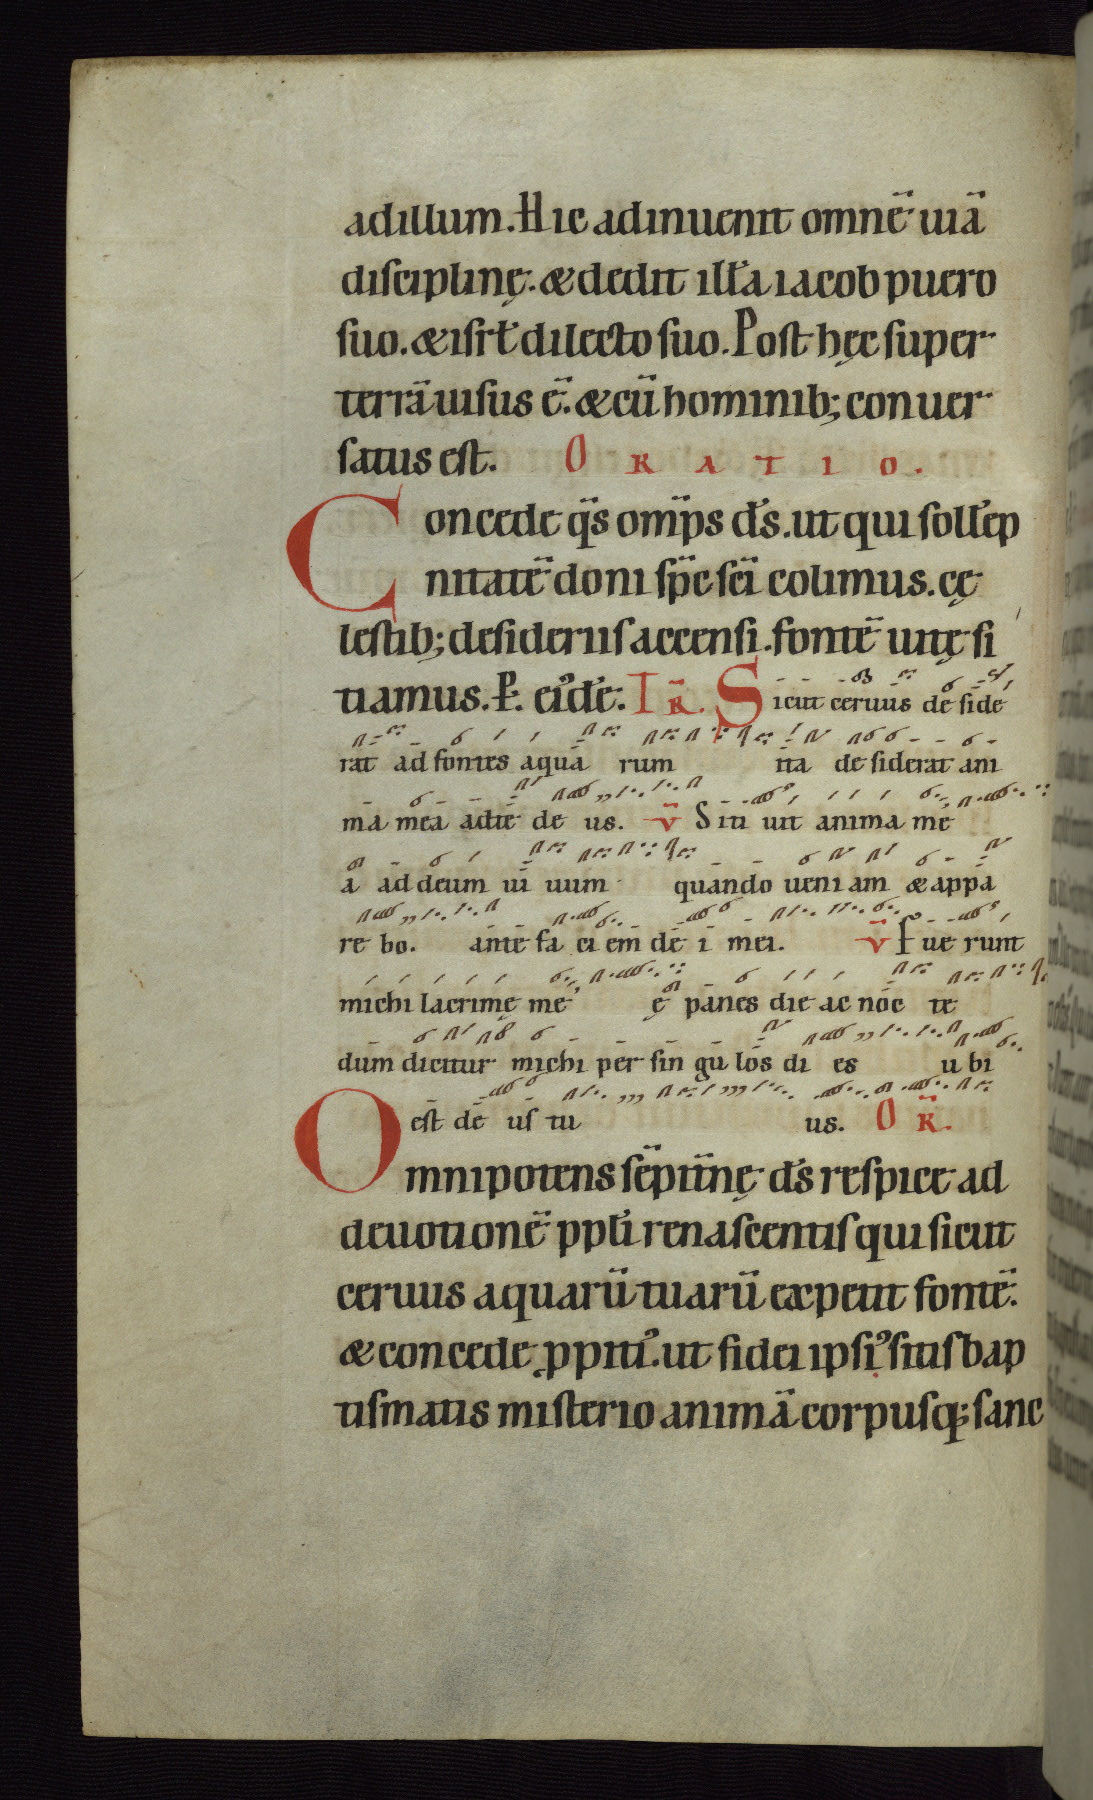 adillum. Hic adinuenit omnē uiā
disciplinę. & dedit illā iacob puero
suo. & isrł dilecto suo. Post hęc super
terrā uisus ē. & cū hominib; conuer
satus est. ORATIO.
Concede q̄s om̄ps d̄s. ut qui sollēp
nitatē doni sp̄c sc̄i colimus. cę
lestib; desideriis accensi. fontē uitę si
tiamus. P. eiꝰdē. TR̄. Sicut ceruus deside
rat ad fontes aqua rum ita desiderat ani
ma mea adte de us. v̄ Siti uit anima me
a ad deum ui uum quando ueni am & appa
re bo. ante fa ci em de i mei. v̄ Fue runt
michi lacrimę me ę panes die ac noc te
dum dicitur michi per sin gu los di es u bi
est de us tu us. OR̄.
Omnipotens sēpit̄nę d̄s respice ad
deuotionē pplī renascentis qui sicut
ceruus aquarū tuarū expetit fontē.
& concede ꝓpitiꝰ. ut fidei ipsiꝰ sitis bap
tismatis misterio animā corpusq; sanc